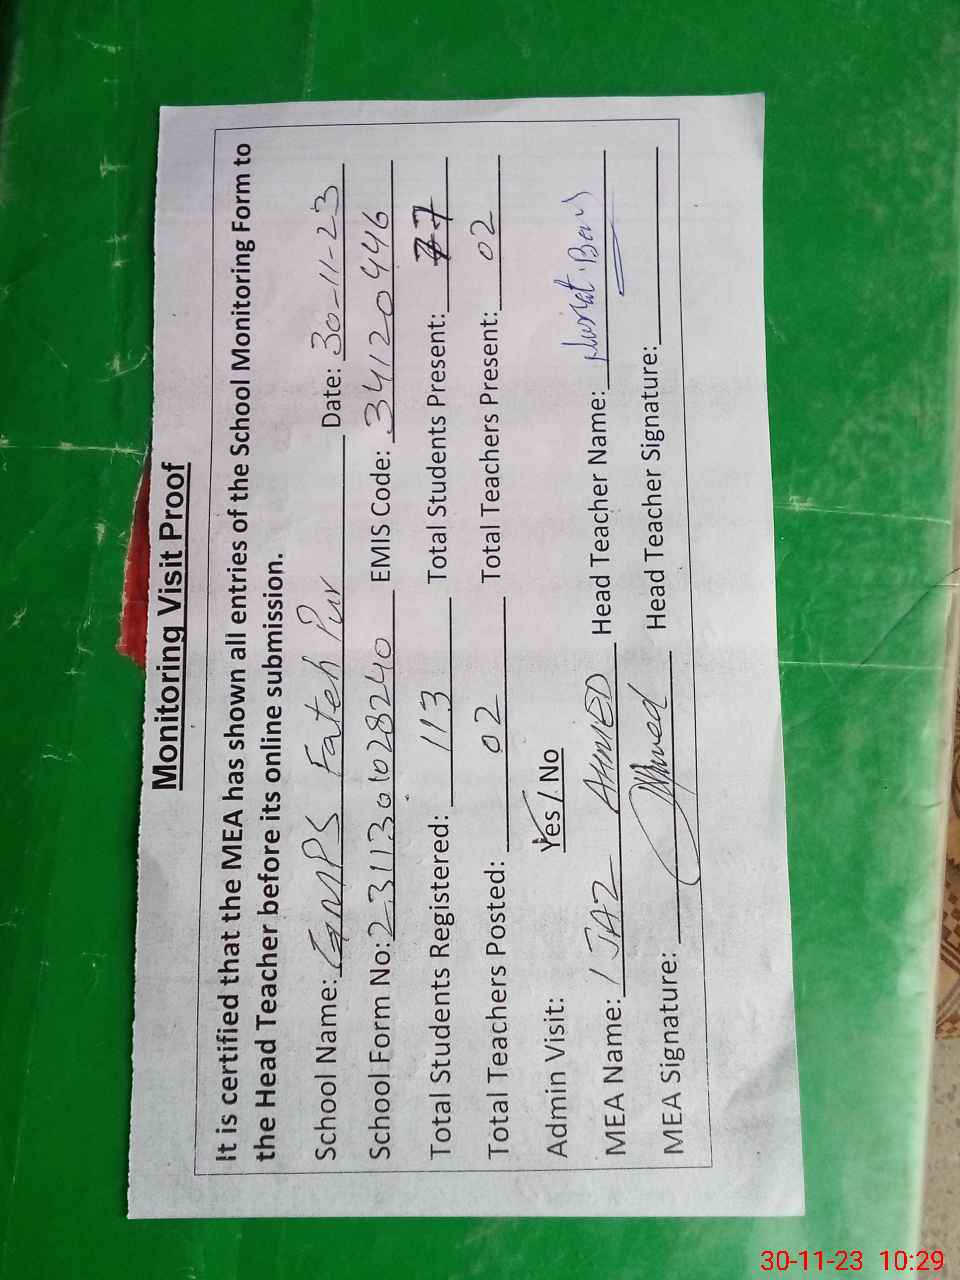 Monitoring Visit Proof
It is certified that the MEA has shown all entries of the School Monitoring Form to
the Head Teacher before its online submission.
School Name: GMPS Fateh Pur Date: 30-11-23
School Form No: 23111301028240 EMIS Code: 34120446
Total Students Registered: 113 Total Students Present: 77
Total Teachers Posted: 02 Total Teachers Present: 02
Admin Visit: Yes / No
MEA Name: IJAZ AHMED Head Teacher Name:
MEA Signature: Ahmed Head Teacher Signature:
30-11-23 10:29